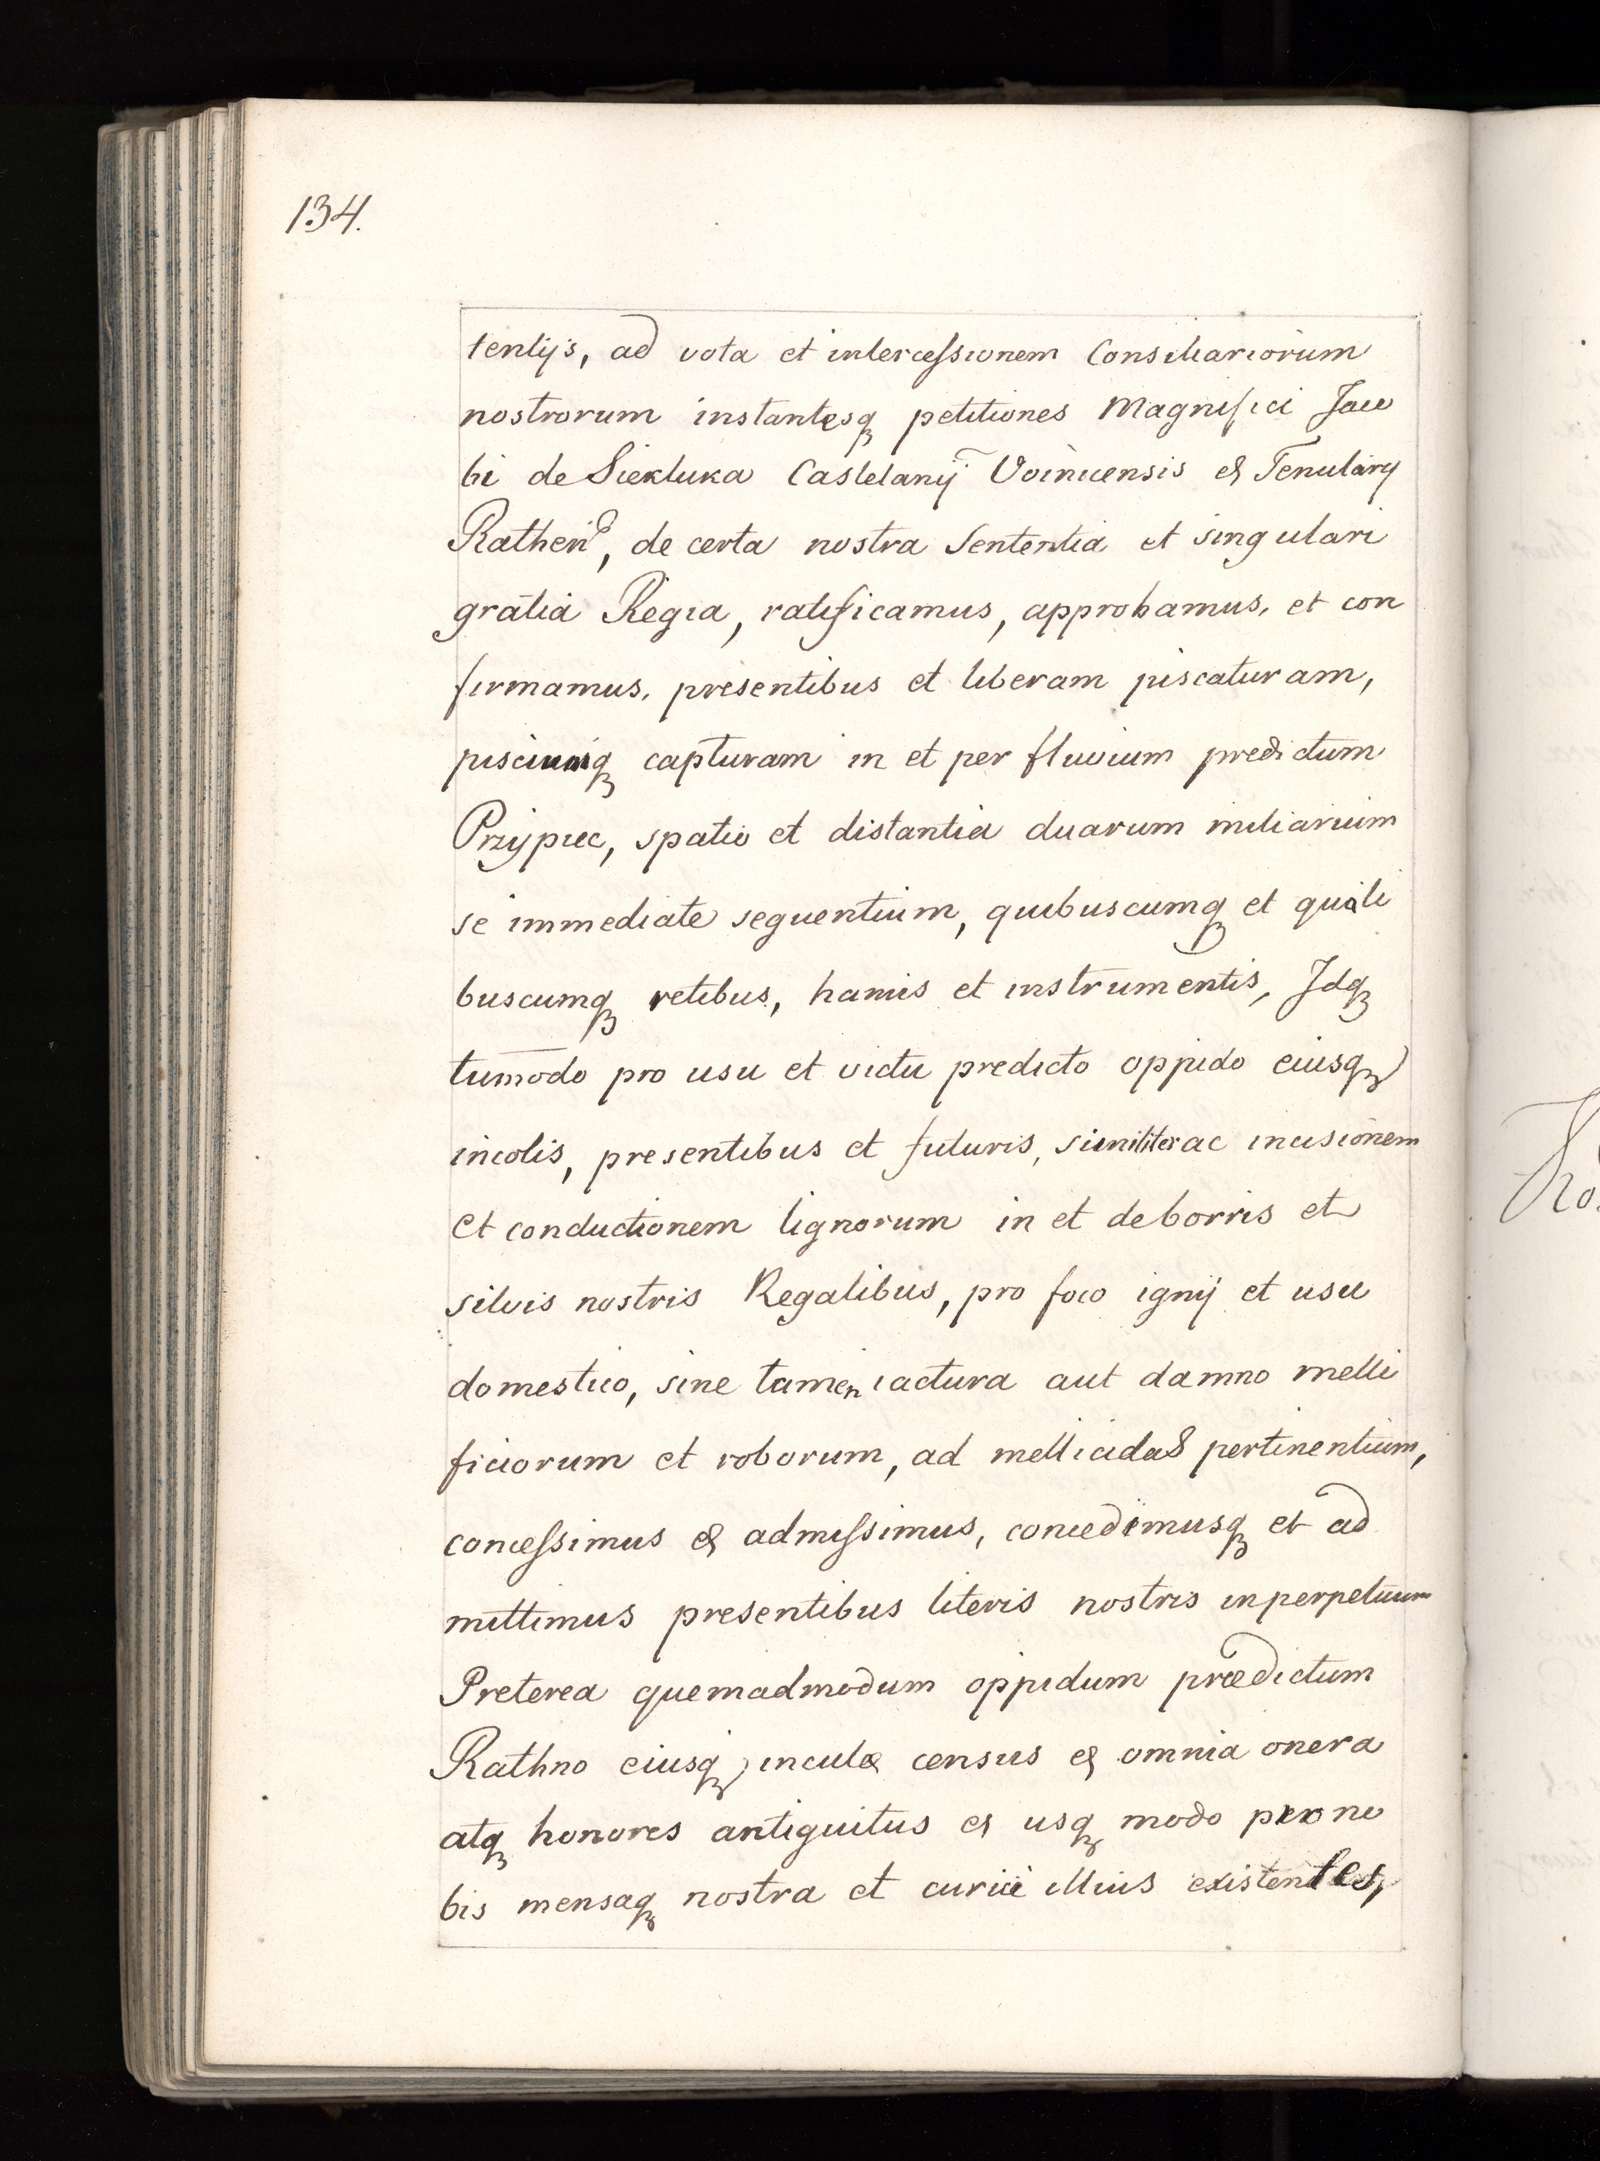 134.
tentijs, ad vota et intercessionem Consiliariorum
nostrorum instantesq petitiones Magnifici Jaco
bi de Siekluka Castelanij Voinicensis et Tenutary
Rathen, de certa nostra Sententia et singulari
gratia Regia, ratificamus, approbamus, et con
firmamus, presentibus et liberam piscaturam,
pisciumq capturam in et per fluvium predictum
Przypiec, spatio et distantia duarum miliarium
se immediate sequentium, quibuscumq et quali
buscumq retibus, hamis et instrumentis, Idq
tumodo pro usu et victu predicto oppido eiusq
incolis, presentibus et futuris, similiter ac incisionem
et conductionem lignorum in et de borris et
silvis nostris Regalibus, pro foco ignij et usu
domestico, sine tamen iactura aut damno melli
ficiorum et roborum, ad mellicidas pertinentium,
concessimus et admissimus, concedimusq et ad
mittimus presentibus literis nostris in perpetuum
Preterea quemadmodum oppidum prædictum
Rathno eiusq inculæ census et omnia onera
atq honores antiquitus et usq modo pro no
bis mensaq nostra et curiæ illius existentes,